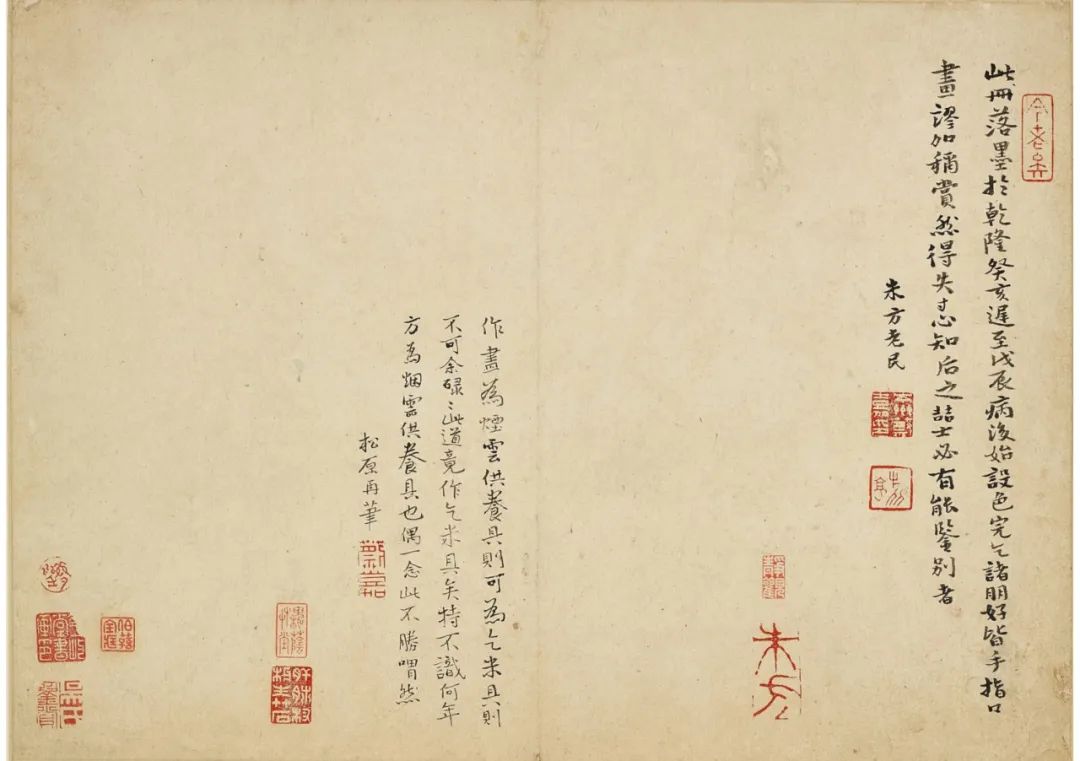 此冊落墨於乾隆癸亥遲至戊辰病後始設色完之諸朋好皆手指口
畫謬加稱賞然得失寸心知后之喆士必有能鑒別者
朱方老民
作畫為煙雲供養具則可為乞米具則
不可余碌〻此道竟作乞米具矣特不識何年
方為烟雲供養具也偶一念此不勝喟然
松原再筆
朱方